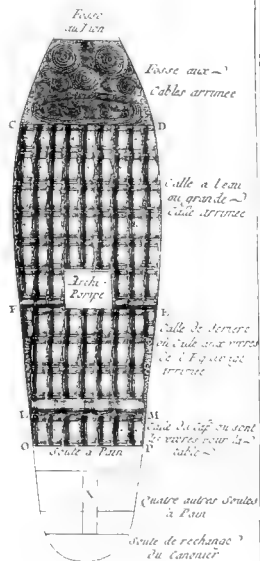 Fosse
au Lion
Fosse aux
Cables arrimée
C
D
Calle a l'eau
ou grande
Calle arrimée
Archi
Pompe
F
E
Calle de derriere
ou Calle aux vivres
de l'Equipage
arrimée
L
M
Calle du Caf ou sont
les vivres pour la
table
O
P
Soute a Pain
Quatre autres Soutes
à Pain
Soute de rechange
du Canonier